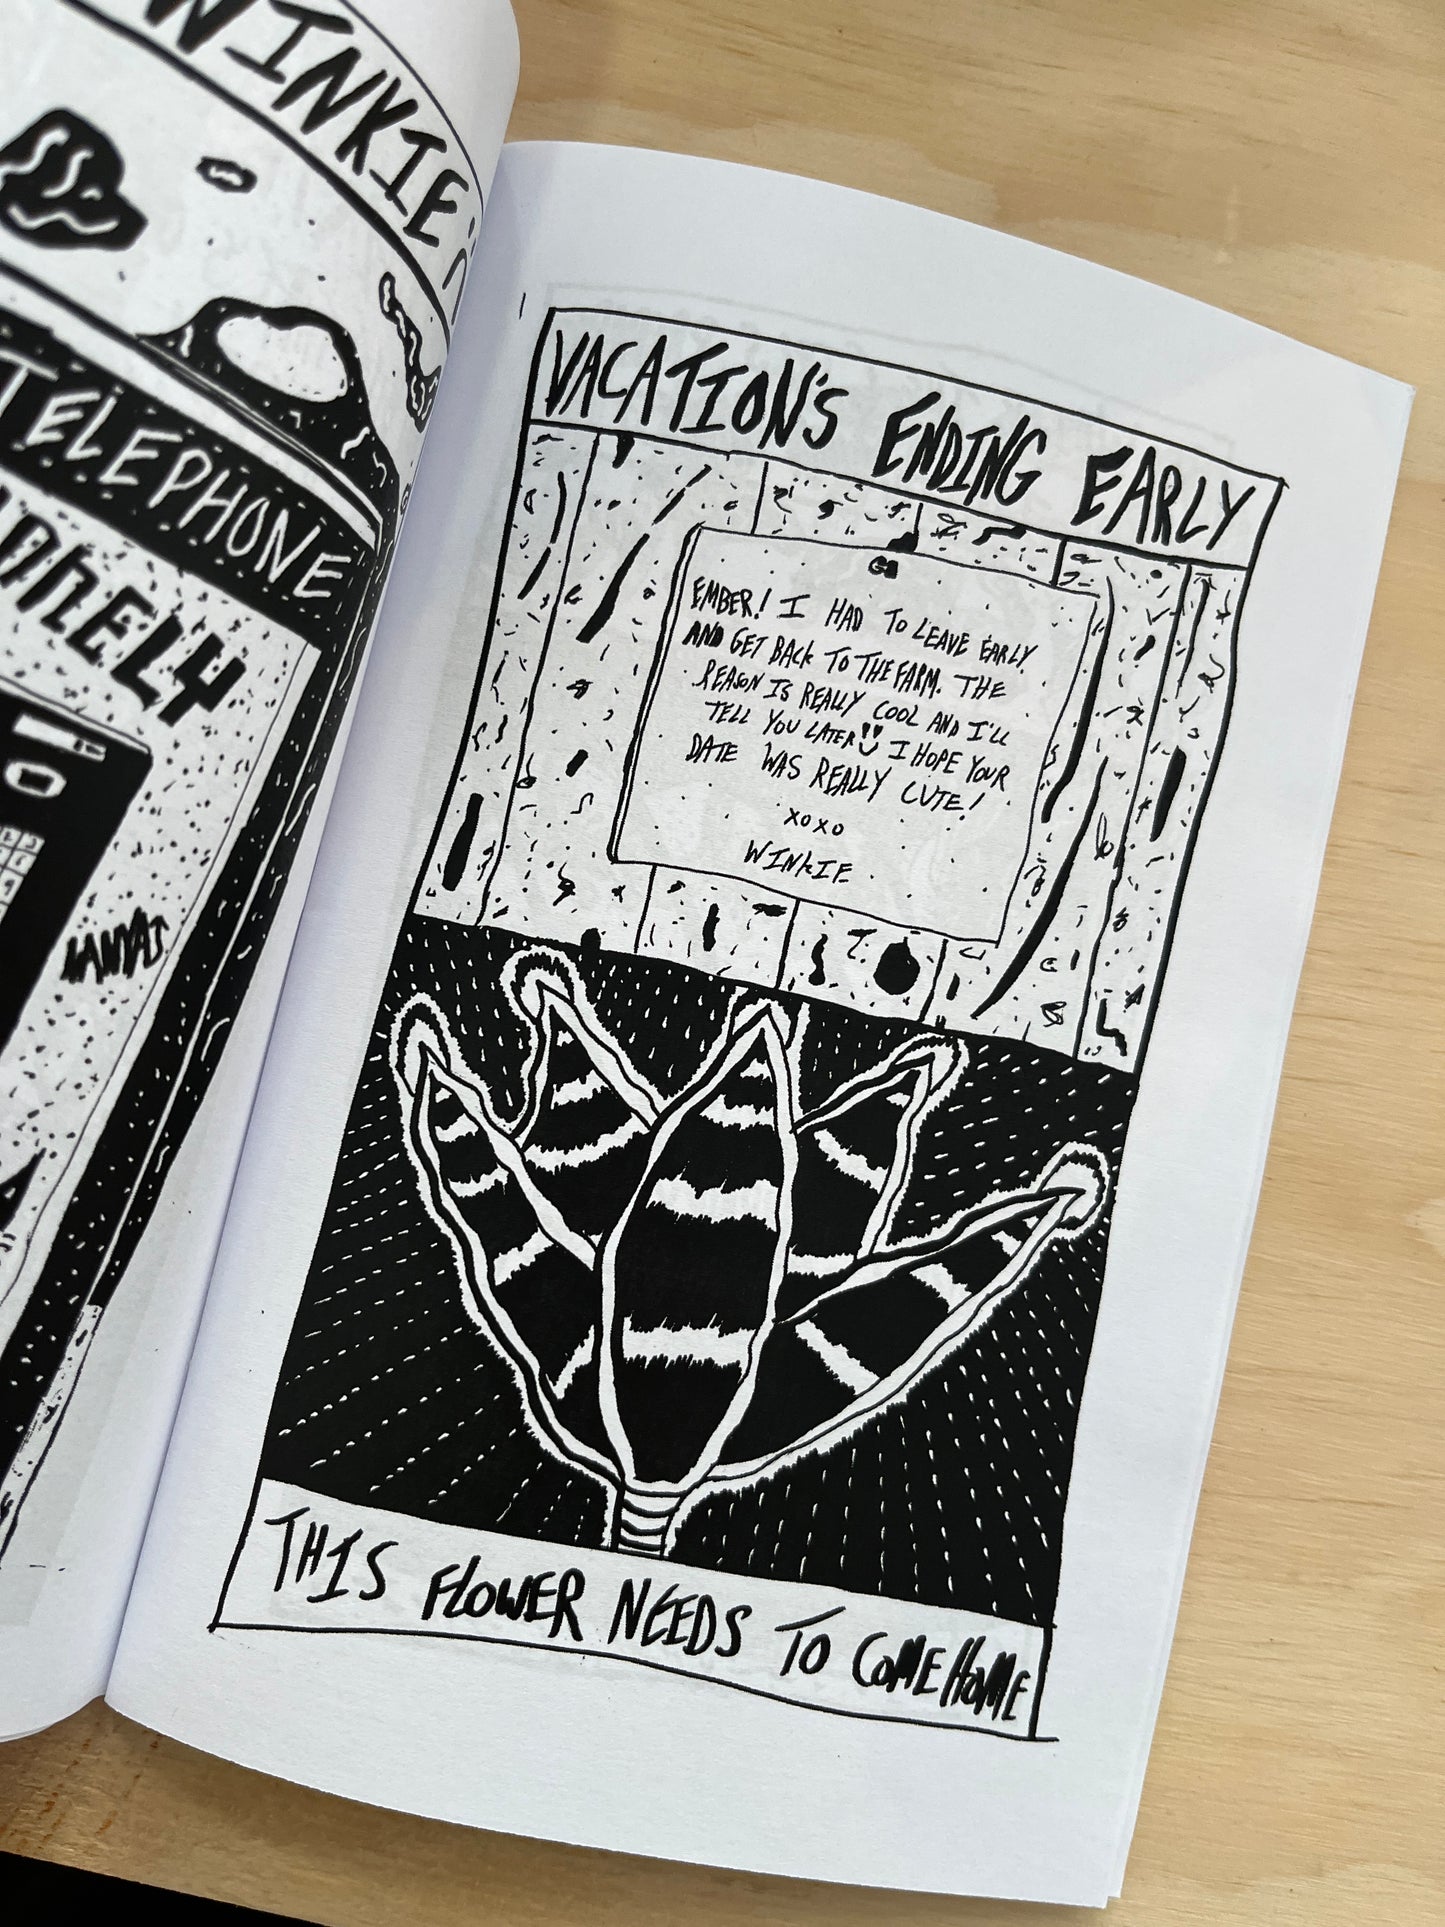 WINKIE
TELEPHONE
VACATION'S ENDING EARLY
EMBER! I HAD TO LEAVE EARLY
AND GET BACK TO THE FARM. THE
REASON IS REALLY COOL AND I'LL
TELL YOU LATER!! I HOPE YOUR
DATE WAS REALLY CUTE!
XOXO
WINKIE
THIS FLOWER NEEDS TO COME HOME